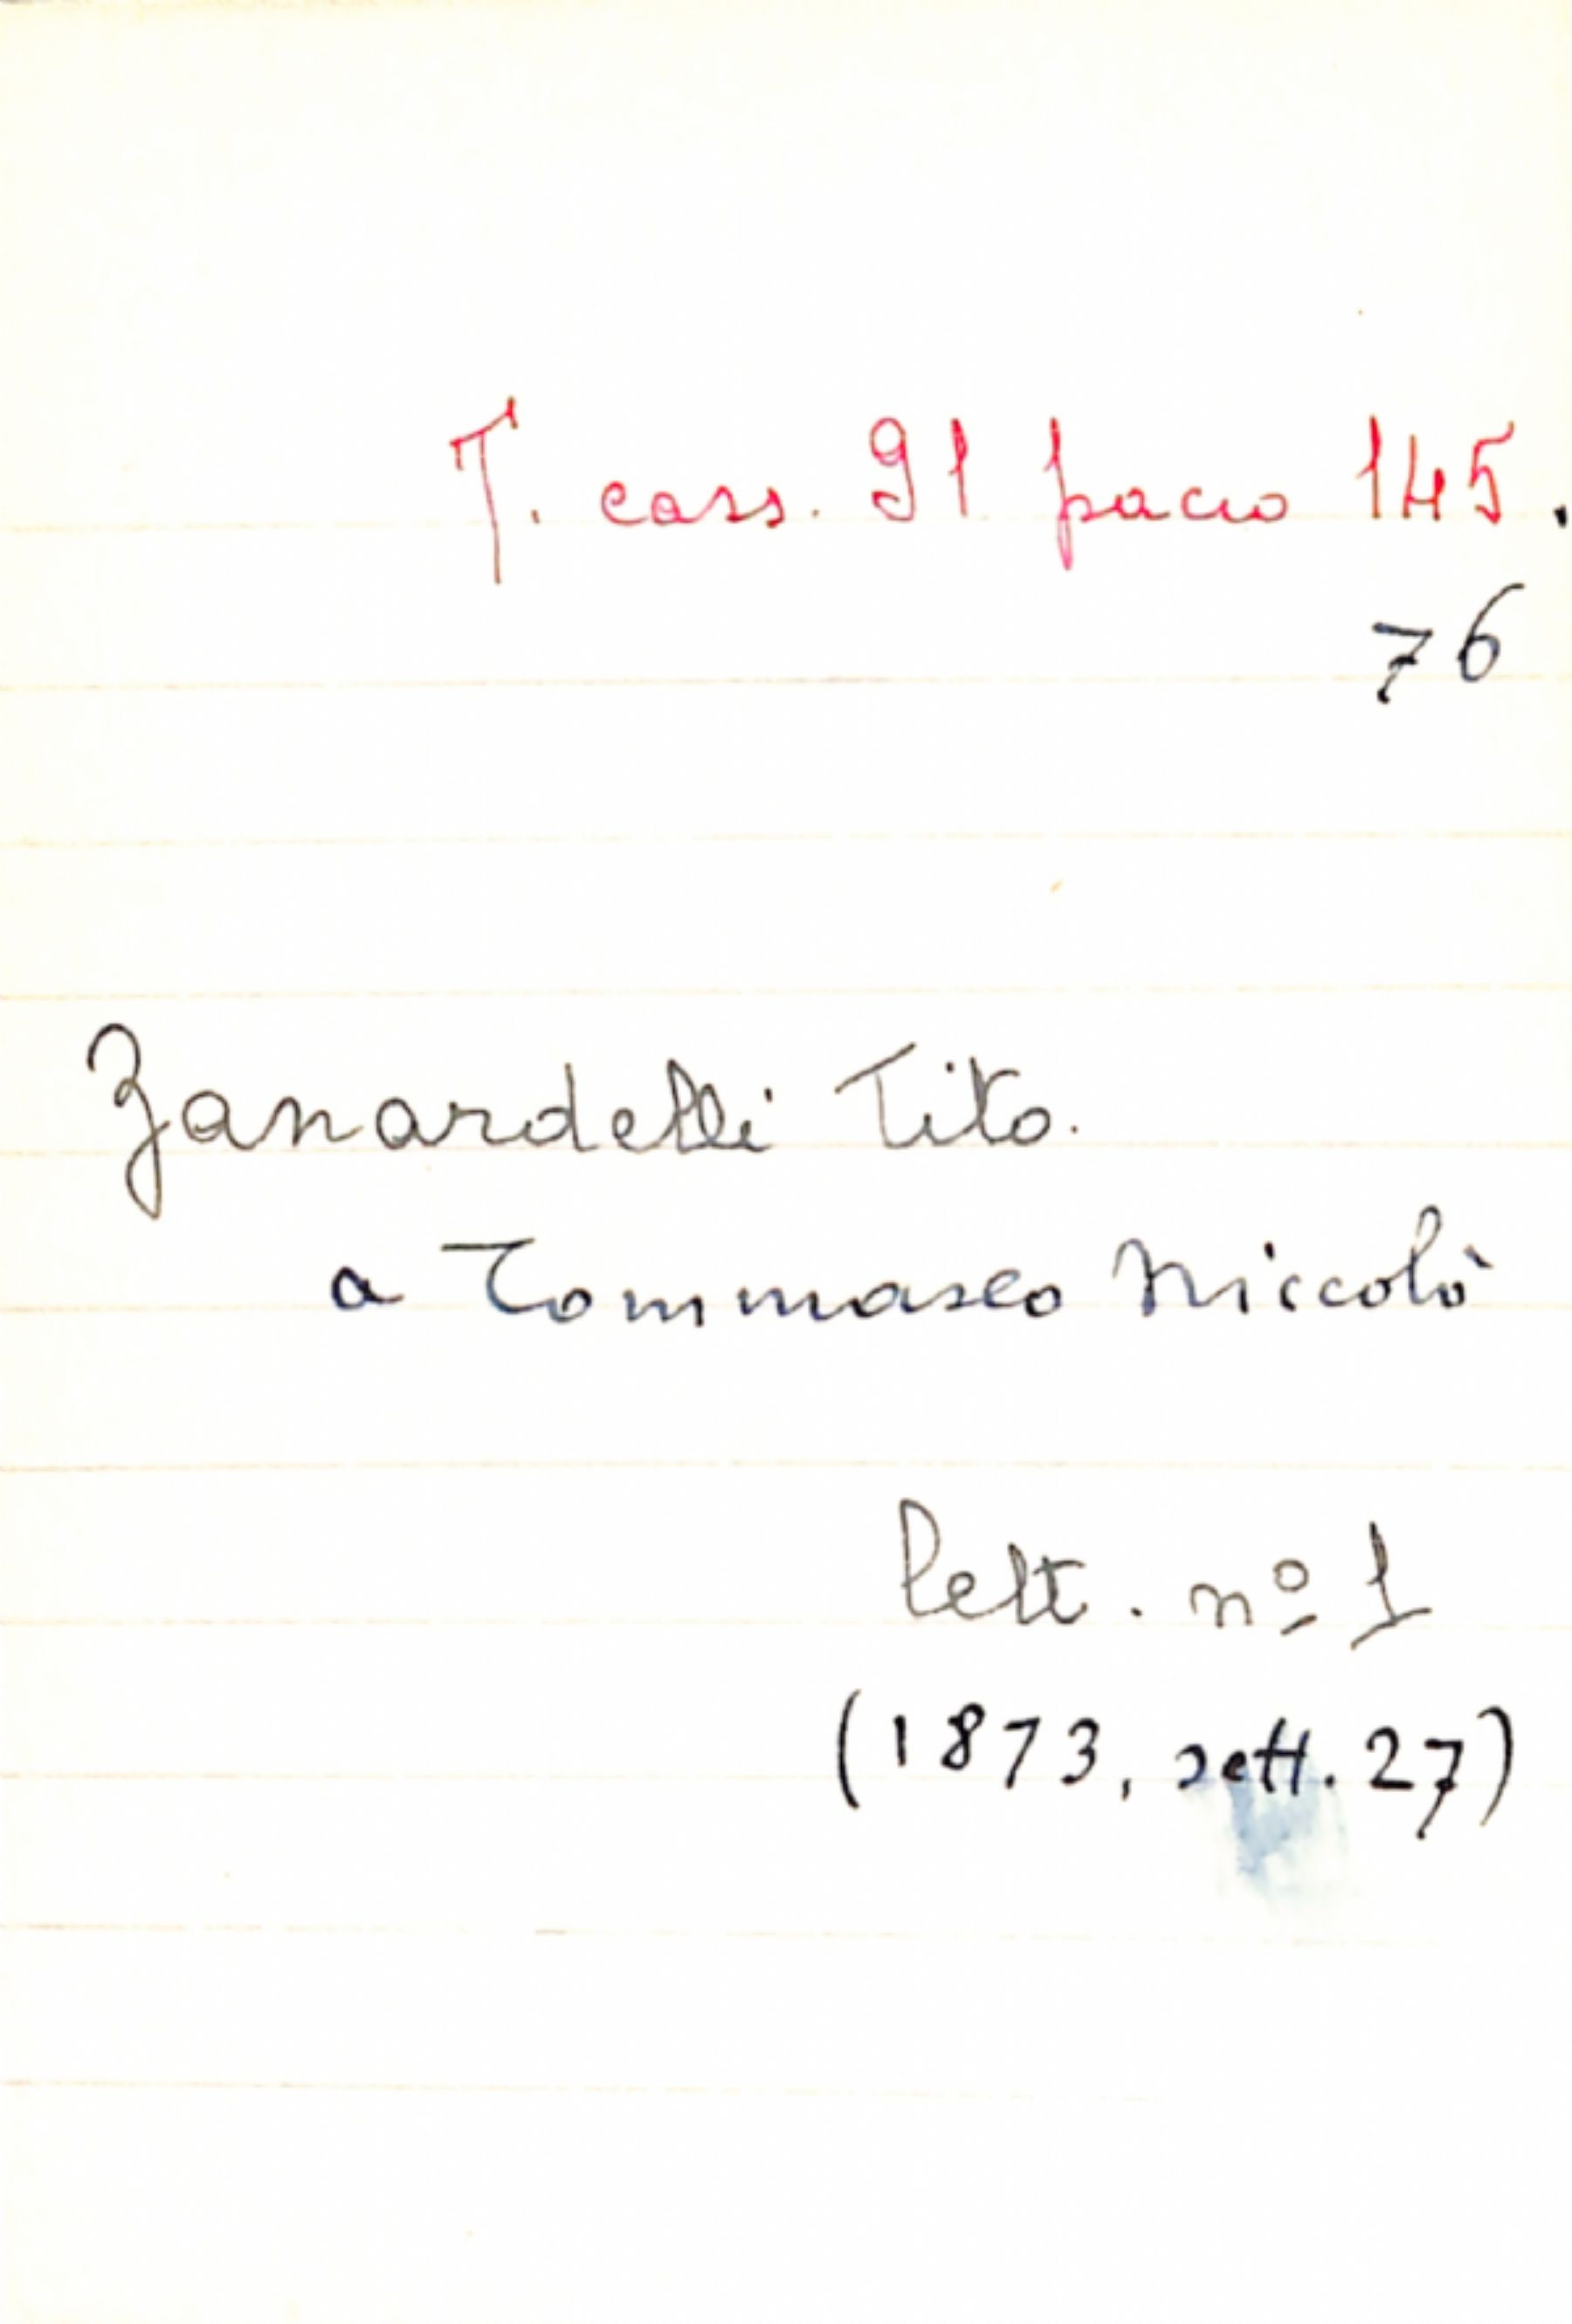 T. cass. 91 pacco 145.
76
Zanardelli Tito.
a Tommaseo Niccolò
lett. nº 1
(1873, sett. 27)